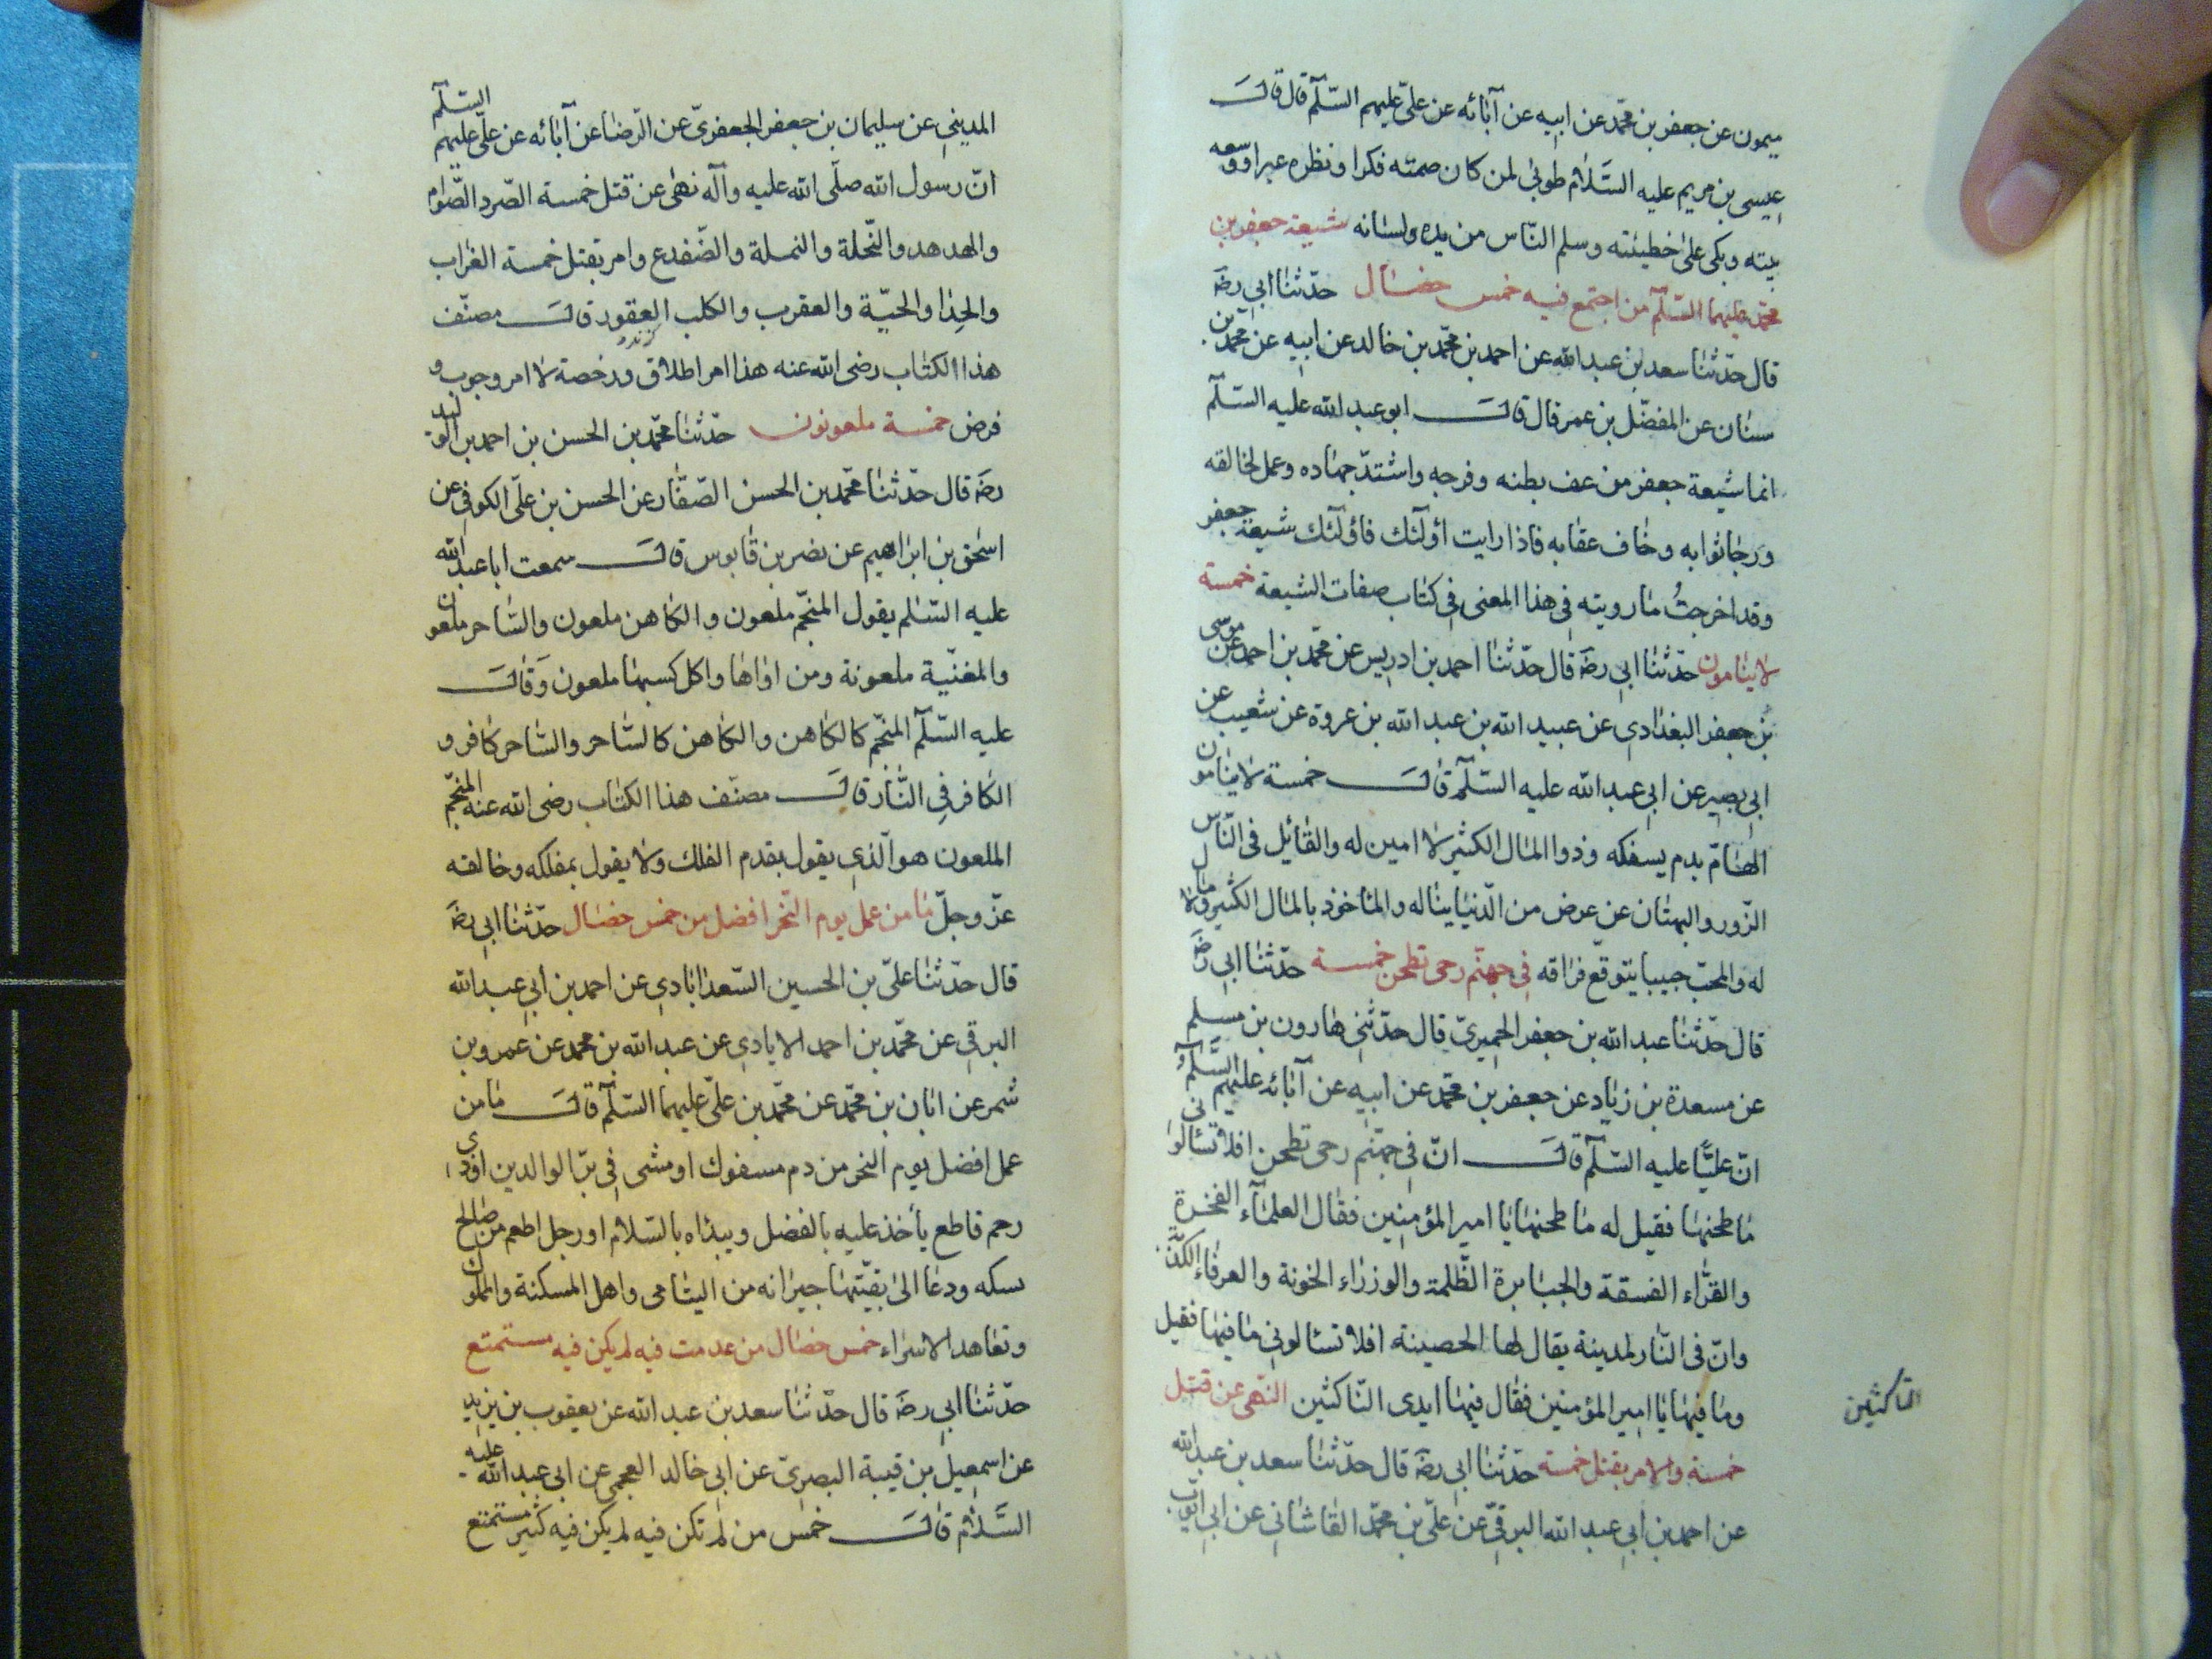 ميمون عن جعفر بن محمّد عن ابيه عن آبائه عن علىّ عليهم السّلم قال قال
عيسى بن مريم عليه السّلام طوبى لمن كان صمته فكرا ونظره عبرا ووسعه
بيته وبكى على خطيئته وسلم النّاس من يده ولسانه شيعة جعفر بن
محمّد عليهما السّلم من اجتمع فيه خمس خصال حدّثنا ابى رضه
قال حدّثنا سعد بن عبد الله عن احمد بن محمّد بن خالد عن ابيه عن محمّد بن
سنان عن المفضّل بن عمر قال قال ابو عبد الله عليه السّلم
انما شيعة جعفر من عف بطنه وفرجه واشتدّ جهاده وعمل لخالقه
ورجا ثوابه وخاف عقابه فاذا رايت أولئك فأولئك شيعة جعفر
وقد اخرجتُ ما رويته فى هذا المعنى فى كتاب صفات الشيعة خمسة
لا ينامون حدّثنا ابى رضه قال حدّثنا احمد بن ادريس عن محمّد بن احمد عن موسى
بن جعفر البغدادى عن عبيد الله بن عبد الله بن عروة عن شعيب عن
ابى بصير عن ابى عبد الله عليه السّلم قال خمسة لا ينامون
الهامّ بدم يسفكه وذوا المال الكثير لا امين له والقائل فى النّاس
الزّور والبهتان عن عرض من الدّنيا يناله والمأخوذ بالمال الكثير ولا مال
له والمحبّ حبيبا يتوقّع فراقه فى جهنّم رحى تطحن خمسة حدّثنا ابى رضه
قال حدّثنا عبد الله بن جعفر الحميرىّ قال حدّثنى هارون بن مسلم
عن مسعدة بن زياد عن جعفر بن محمّد عن ابيه عن آبائه عليهم السّلم
انّ عليّا عليه السّلم قال انّ فى جهنّم رحى تطحن افلا تسألونى
ما طحنها فقيل له ما طحنها يا امير المؤمنين فقال العلماء الفجرة
والقرّاء الفسقة والجبابرة الظّلمة والوزراء الخونة والعرفاء الكذبة
وانّ فى النّار لمدينة يقال لها الحصينة افلا تسألونى ما فيها فقيل
وما فيها يا امير المؤمنين فقال فيها ايدى النّاكثين النّهى عن قتل
النّاكثين
خمسة والامر بقتل خمسة حدّثنا ابى رضه قال حدّثنا سعد بن عبد الله
عن احمد بن ابى عبد الله البرقىّ عن علىّ بن محمّد القاشانى عن ابى ايّوب
المدينى عن سليمان بن جعفر الجعفرىّ عن الرّضا عن آبائه عن علىّ عليهم السّلم
انّ رسول الله صلّى الله عليه وآله نهى عن قتل خمسة الصّرد الصّوام
والهدهد والنّحلة والنملة والضّفدع وامر بقتل خمسة الغراب
والحِدا والحيّة والعقرب والكلب العقور قال مصنّف
هذا الكتاب رضى الله عنه هذا امر اطلاق ورخصة لا امر وجوب و
فرض خمسة ملعونون حدّثنا محمّد بن الحسن بن احمد بن الوليد
رضه قال حدّثنا محمّد بن الحسن الصّفّار عن الحسن بن علىّ الكوفى عن
اسحق بن ابراهيم عن نضر بن قابوس قال سمعت ابا عبد الله
عليه السّلم يقول المنجّم ملعون والكاهن ملعون والسّاحر ملعون
والمغنّية ملعونة ومن اواها واكل كسبها ملعون وقال
عليه السّلم المنجّم كالكاهن والكاهن كالسّاحر والسّاحر كافر و
الكافر فى النّار قال مصنّف هذا الكتاب رضى الله عنه المنجّم
الملعون هو الّذى يقول بقدم الفلك ولا يقول بمفلكه وخالقه
عزّ وجلّ ما من عمل يوم النّحر افضل من خمس خصال حدّثنا ابى رضه
قال حدّثنا علىّ بن الحسين السّعدابادى عن احمد بن ابى عبد الله
البرقى عن محمّد بن احمد الايادى عن عبد الله بن محمد عن عمرو بن
شمر عن ابان بن محمّد عن محمّد بن علىّ عليهما السّلم قال ما من
عمل افضل يوم النحر من دم مسفوك او مشى فى برّ الوالدين او ذى
رحم قاطع يأخذ عليه بالفضل ويبدأه بالسّلام او رجل اطعم من صالح
نسكه ودعا الى بقيّتها جيرانه من اليتامى واهل المسكنة والمملوك
وتعاهد الاسراء خمس خصال من عدمت فيه لم يكن فيه مستمتع
حدّثنا ابى رضه قال حدّثنا سعد بن عبد الله عن يعقوب بن يزيد
عن اسمعيل بن قيبة البصرىّ عن ابى خالد العجمى عن ابى عبد الله عليه
السّلام قال خمس من لم تكن فيه لم يكن فيه كثير مستمتع